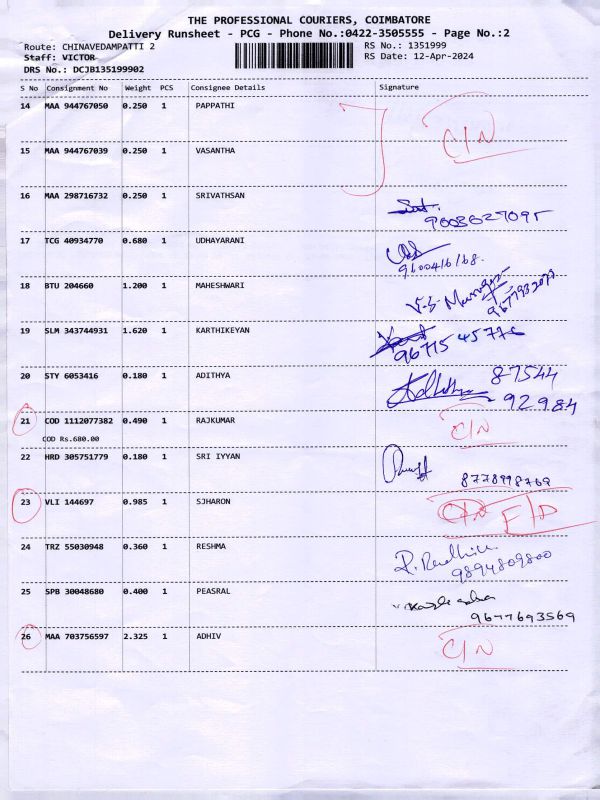 THE PROFESSIONAL COURIERS, COIMBATORE
Delivery Runsheet - PCG - Phone No.:0422-3505555 - Page No.:2
Route: CHINAVEDAMPATTI 2 RS No.: 1351999
Staff: VICTOR RS Date: 12-Apr-2024
DRS No.: DCJB135199902
S No Consignment No Weight PCS Consignee Details Signature
14 MAA 944767050 0.250 1 PAPPATHI C/N
15 MAA 944767039 0.250 1 VASANTHA
16 MAA 298716732 0.250 1 SRIVATHSAN
9003627095
17 TCG 40934770 0.680 1 UDHAYARANI
9600416168.
18 BTU 204660 1.200 1 MAHESHWARI V.S. Murugan
9677932077
19 SLM 343744931 1.620 1 KARTHIKEYAN
96715 45776
20 STY 6053416 0.180 1 ADITHYA Adhithya 87544
92984
21 COD 1112077382 0.490 1 RAJKUMAR C/N
COD Rs.680.00
22 HRD 305751779 0.180 1 SRI IYYAN
8778998769
23 VLI 144697 0.985 1 SJHARON C/N F/D
24 TRZ 55030948 0.360 1 RESHMA
9894809800
25 SPB 30048680 0.400 1 PEASRAL
9677693569
26 MAA 703756597 2.325 1 ADHIV C/N